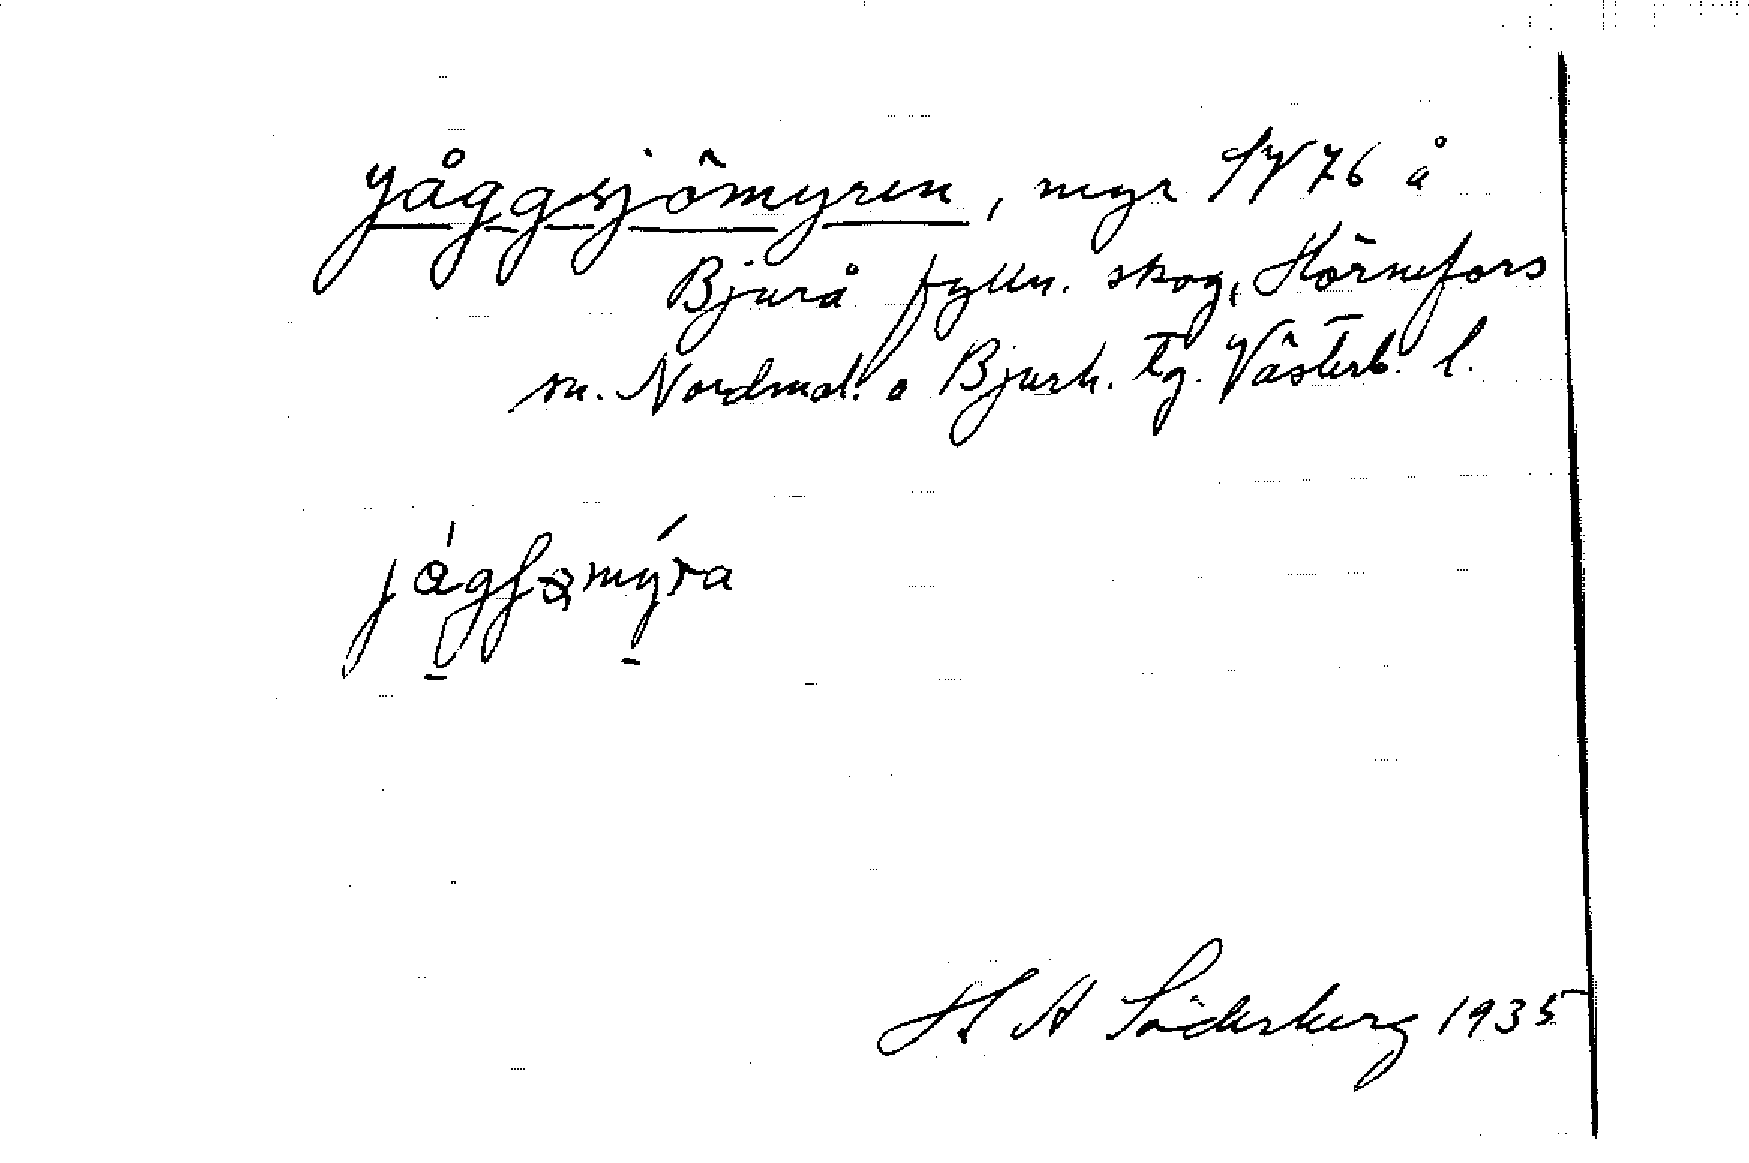 Jåggsjömyren, myr SV 76 å
Bjurå fylln. skog, Hörnefors
sn. Nordmal. o Bjurh. tg. Västerb. l.
H A Söderberg 1935